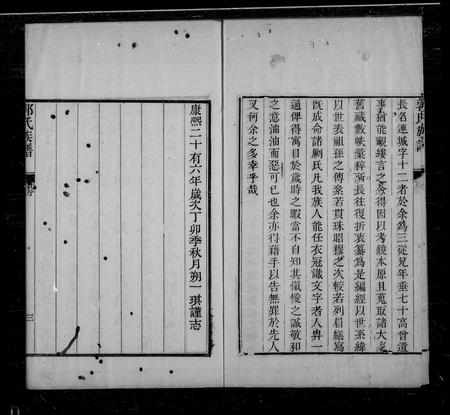 長名連城字十二者於余爲三從兄年垂七十高曾遺
事猶能覼縷言之余得因以考鏡本原且蒐取諸大家
舊藏數帙彙稡演長往復折衷纂爲是編經以世系緯
以世表祖孫之傳系若貫珠昭穆之次較若列眉繕寫
旣成命諸剞氏凡我族人能任衣冠識文字者人畀一
通俾得寓目於歲時之暇當不自知其愾僾之誠敬和
之意油油而惡可已也余亦得藉手以告無罪於先人
又何余之多幸乎哉
康熙二十有六年歲次丁卯季秋月朔一琪謹志
郭氏族譜
三